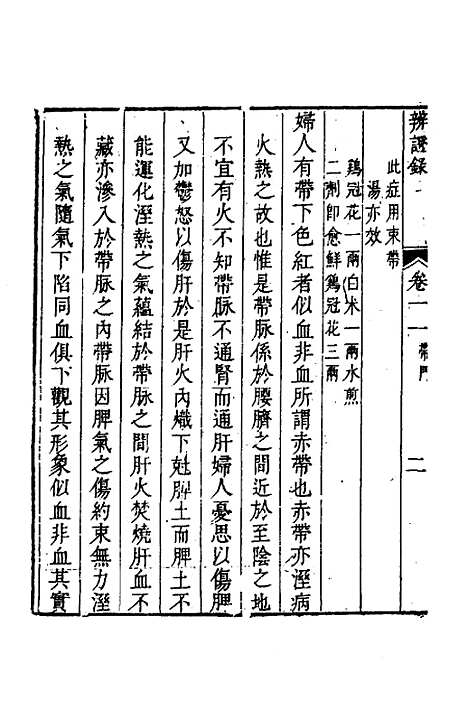 辨證錄
卷十一
帶門
二
此症用束帶
湯亦效
雞冠花一兩白米一兩水煎
二劑即愈鮮雞冠花三兩
婦人有帶下色紅者似血非血所謂赤帶也赤帶亦溼病
火熱之故也惟是帶脉係於腰臍之間近於至陰之地
不宜有火不知帶脉不通腎而通肝婦人憂思以傷脾
又加鬱怒以傷肝於是肝火內熾下尅脾土而脾土不
能運化溼熱之氣蘊結於帶脉之間肝火焚燒肝血不
藏亦滲入於帶脉之內帶脉因脾氣之傷約束無力溼
熱之氣隨氣下陷同血俱下觀其形象似血非血其實